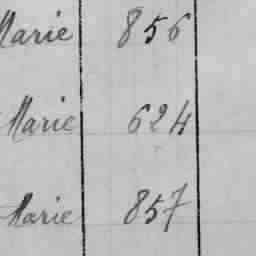 Marie 856
Marie 624
Marie 857